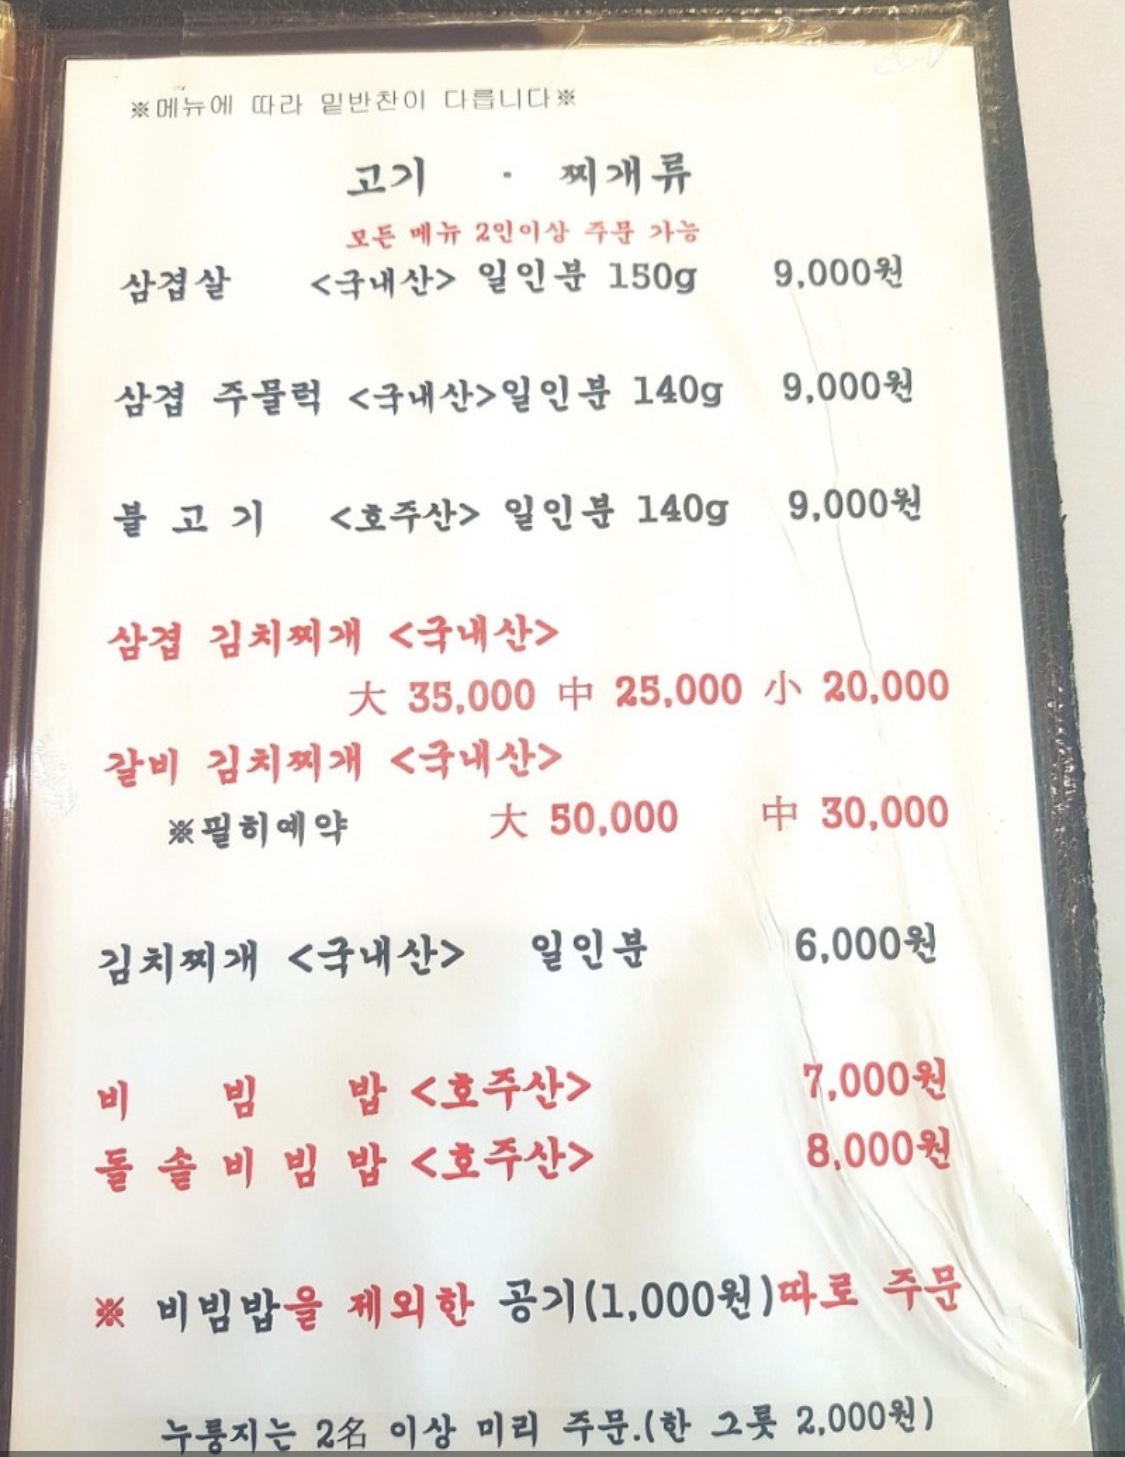 ※메뉴에 따라 밑반찬이 다릅니다※
고기 · 찌개류
모든 메뉴 2인이상 주문 가능
삼겹살 <국내산> 일인분 150g 9,000원
삼겹 주물럭 <국내산>일인분 140g 9,000원
불 고 기 <호주산> 일인분 140g 9,000원
삼겹 김치찌개 <국내산>
大 35,000 中 25,000 小 20,000
갈비 김치찌개 <국내산>
※필히예약 大 50,000 中 30,000
김치찌개 <국내산> 일인분 6,000원
비 빔 밥 <호주산> 7,000원
돌 솥 비 빔 밥 <호주산> 8,000원
※ 비빔밥을 제외한 공기(1,000원)따로 주문
누룽지는 2名 이상 미리 주문.(한 그릇 2,000원)